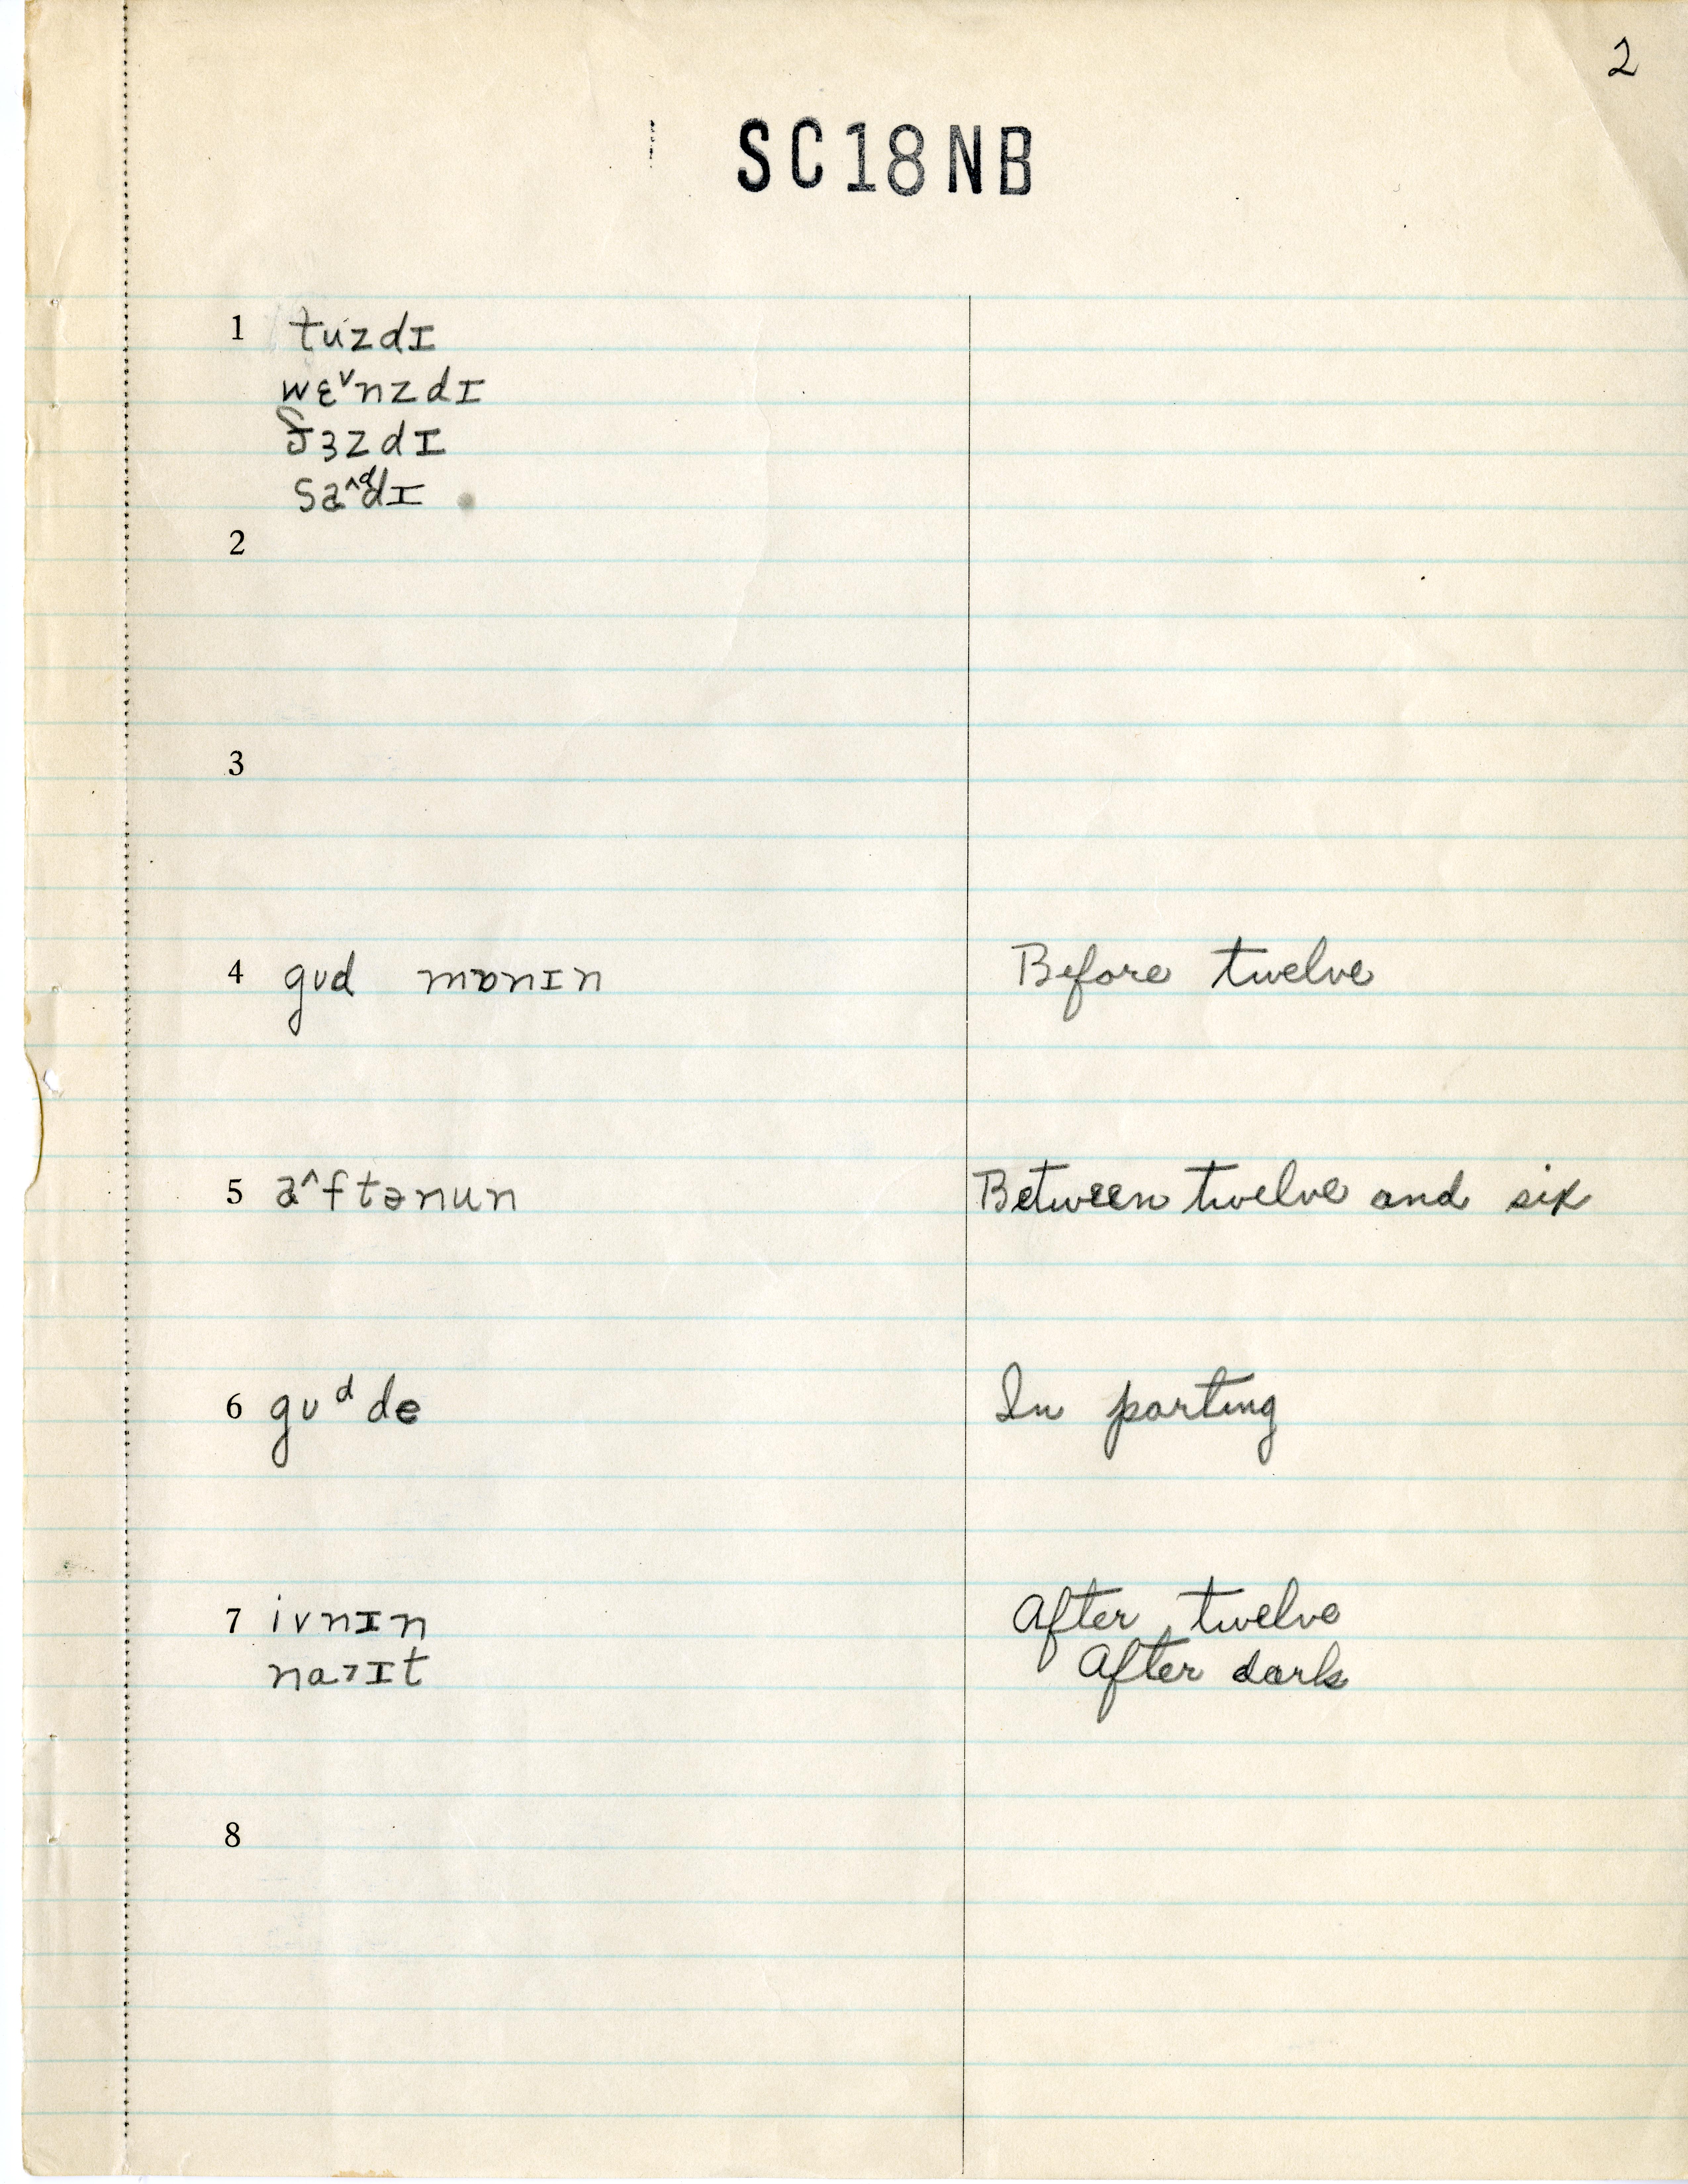 2
SC18NB
1 tuzdɪ
wɛ˅nzdɪ
ɜzdɪ
sa^ᵈdɪ
2
3
4 gʊd mɒnɪn Before twelve
5 a^ftənun Between twelve and six
6 gʊᵈ de In parting
7 ivnɪn After twelve
naɪt After dark
8